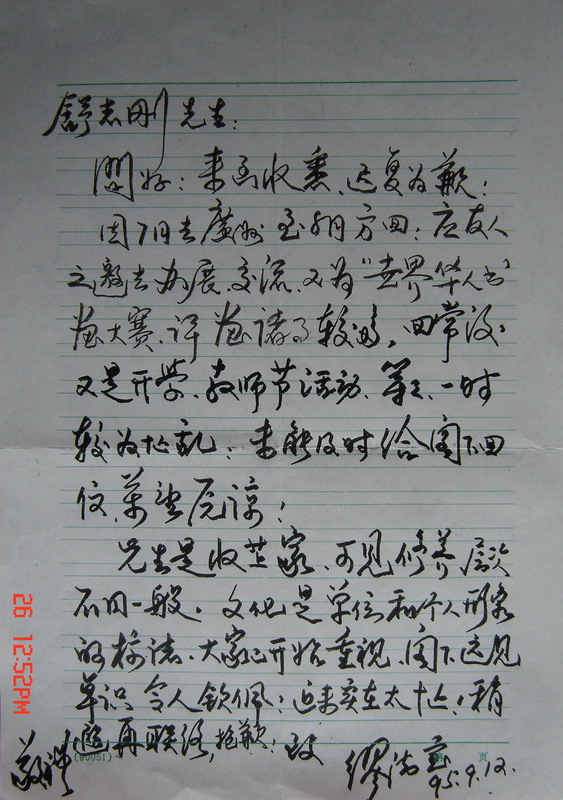 舒志刚先生：
问好：来函收悉，迟复为歉；
因7月去廣州至8月方回；应友人
之邀去办展、交流、又为“世界华人书
画大赛”评画诸事较多，回常後
又是开学、教师节活动、等等、一时
较为忙乱；未能及时给阁下回
信，万望原谅！
先生是收藏家、可见修养层次
不同一般。文化是单位和个人形象
的标志、大家已开始重视、阁下远见
卓识、令人钦佩；近来实在太忙，稍
后再联络，抱歉！致
敬礼
95.9.12.
(90051)
页
26 12:52PM